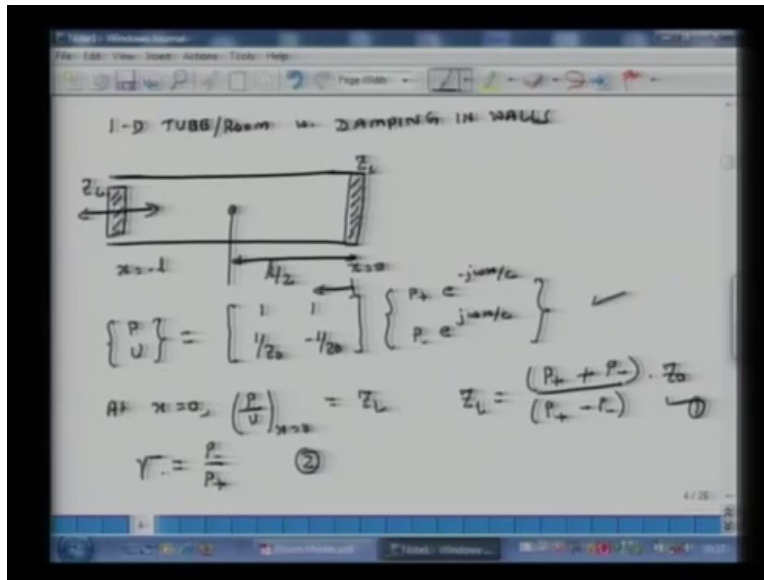 Note1 - Windows Journal
File Edit View Insert Actions Tools Help
Page Width
1-D TUBE/ROOM w. DAMPING IN WALLS
Z_L
Z_L
x=-l
l/2
x=0
{P U} = [1 1 1/Z0 -1/Z0] {P+ e^-jωx/c P- e^jωx/c} ✓
At x=0, (P/U)x=0 = Z_L Z_L = (P+ + P-)/(P+ - P-) . Z0 ①
Γ = P-/P+ ②
4/28
Note1 - Windows...